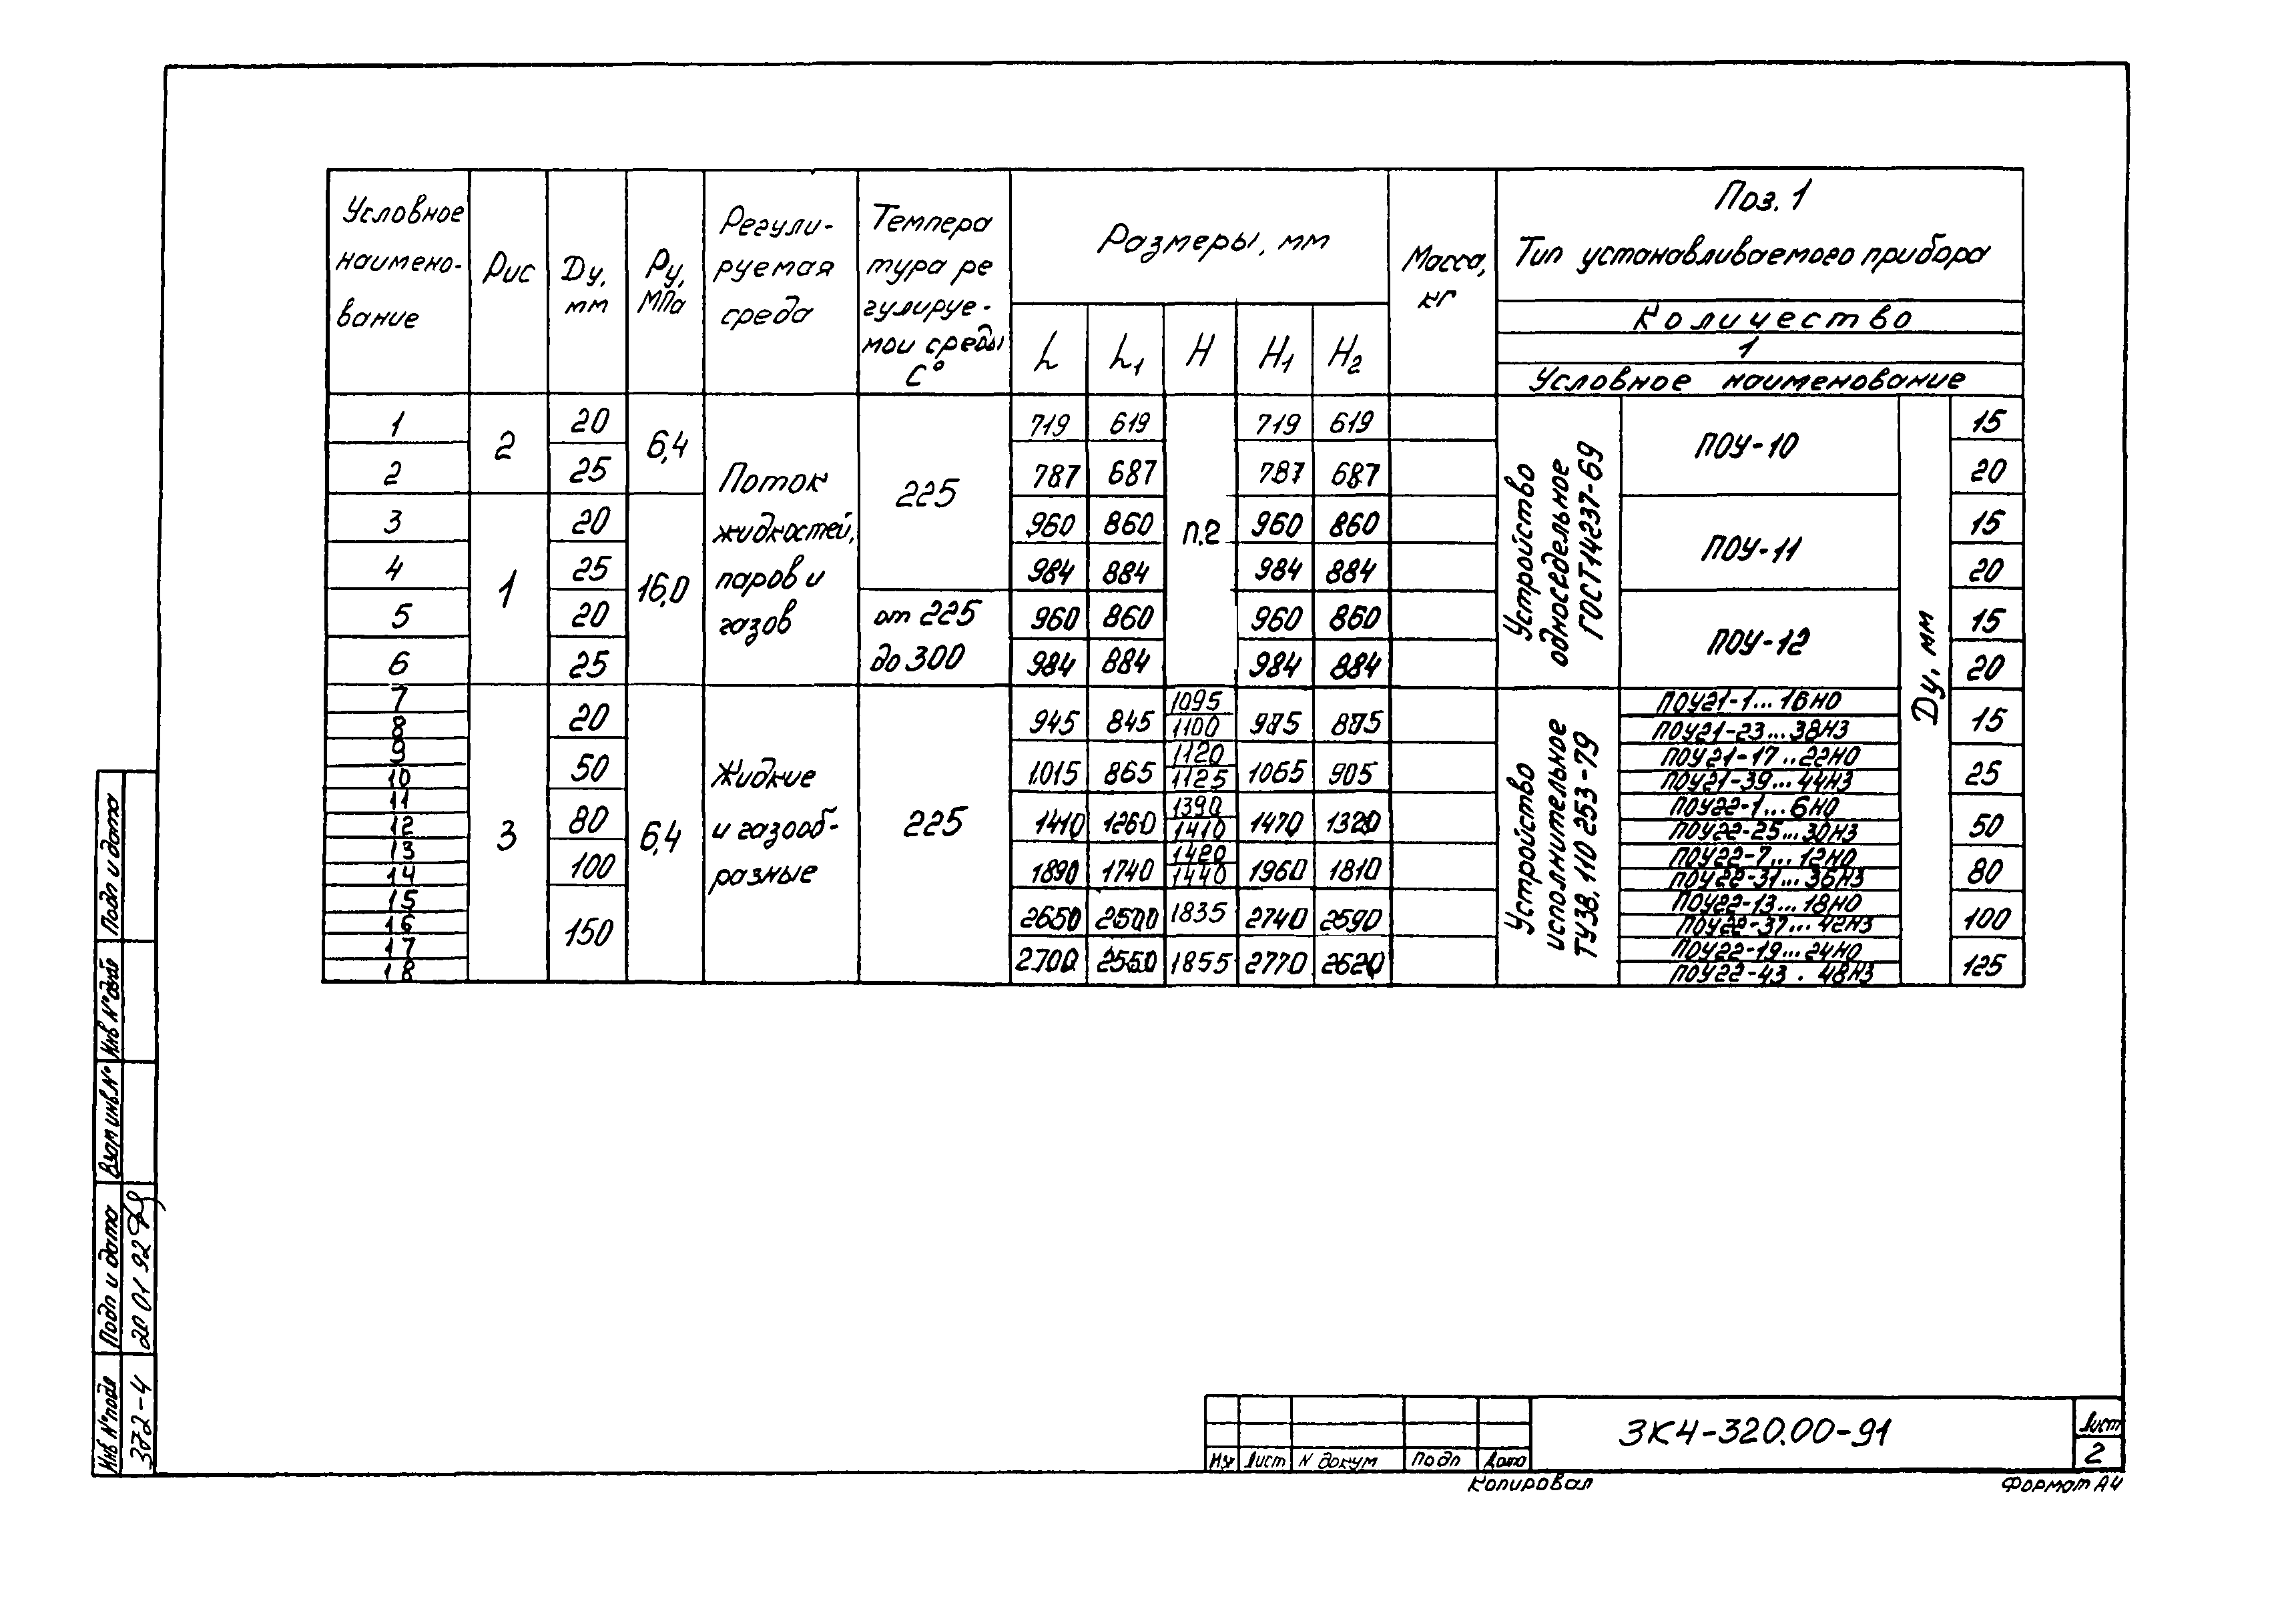 Условное наимено- вание
Рис
Dу, мм
Ру, МПа
Регули- руемая среда
Темпера тура ре гулируе- мои среды С°
Размеры, мм
L L1 H H1 H2
Масса, кг
Поз. 1
Тип устанавливаемого прибора
Количество
1
Условное наименование
1 2 20 6,4 Поток жидкостей, паров и газов 225 719 619 п.2 719 619 Устройство односедельное ГОСТ14237-69 ПОУ-10 Dу, мм 15
2 25 787 687 787 687 20
3 1 20 16,0 960 860 960 860 ПОУ-11 15
4 25 984 884 984 884 20
5 20 от 225 до 300 960 860 960 860 ПОУ-12 15
6 25 984 884 984 884 20
7 3 20 6,4 Жидкие и газооб- разные 225 945 845 1095 985 885 Устройство исполнительное ТУ38.110 253-79 ПОУ21-1...16НО 15
8 1100 ПОУ21-23...38НЗ
9 50 1015 865 1120 1065 905 ПОУ21-17..22НО 25
10 1125 ПОУ21-39...44НЗ
11 80 1410 1260 1390 1470 1320 ПОУ22-1...6НО 50
12 1410 ПОУ22-25...30НЗ
13 100 1890 1740 1420 1960 1810 ПОУ22-7...12НО 80
14 1440 ПОУ22-31...36НЗ
15 150 2650 2500 1835 2740 2590 ПОУ22-13...18НО 100
16 ПОУ22-37...42НЗ
17 2700 2550 1855 2770 2620 ПОУ22-19...24НО 125
18 ПОУ22-43 . 48НЗ
Подп и дата
Инв N° дубл
Взам инв.N°
Подп и дата 20 01 92
Инв N° подл 372-4
Изм Лист N докум Подп Дата
ЗК4-320.00-91
Лист
2
Копировал
Формат А4